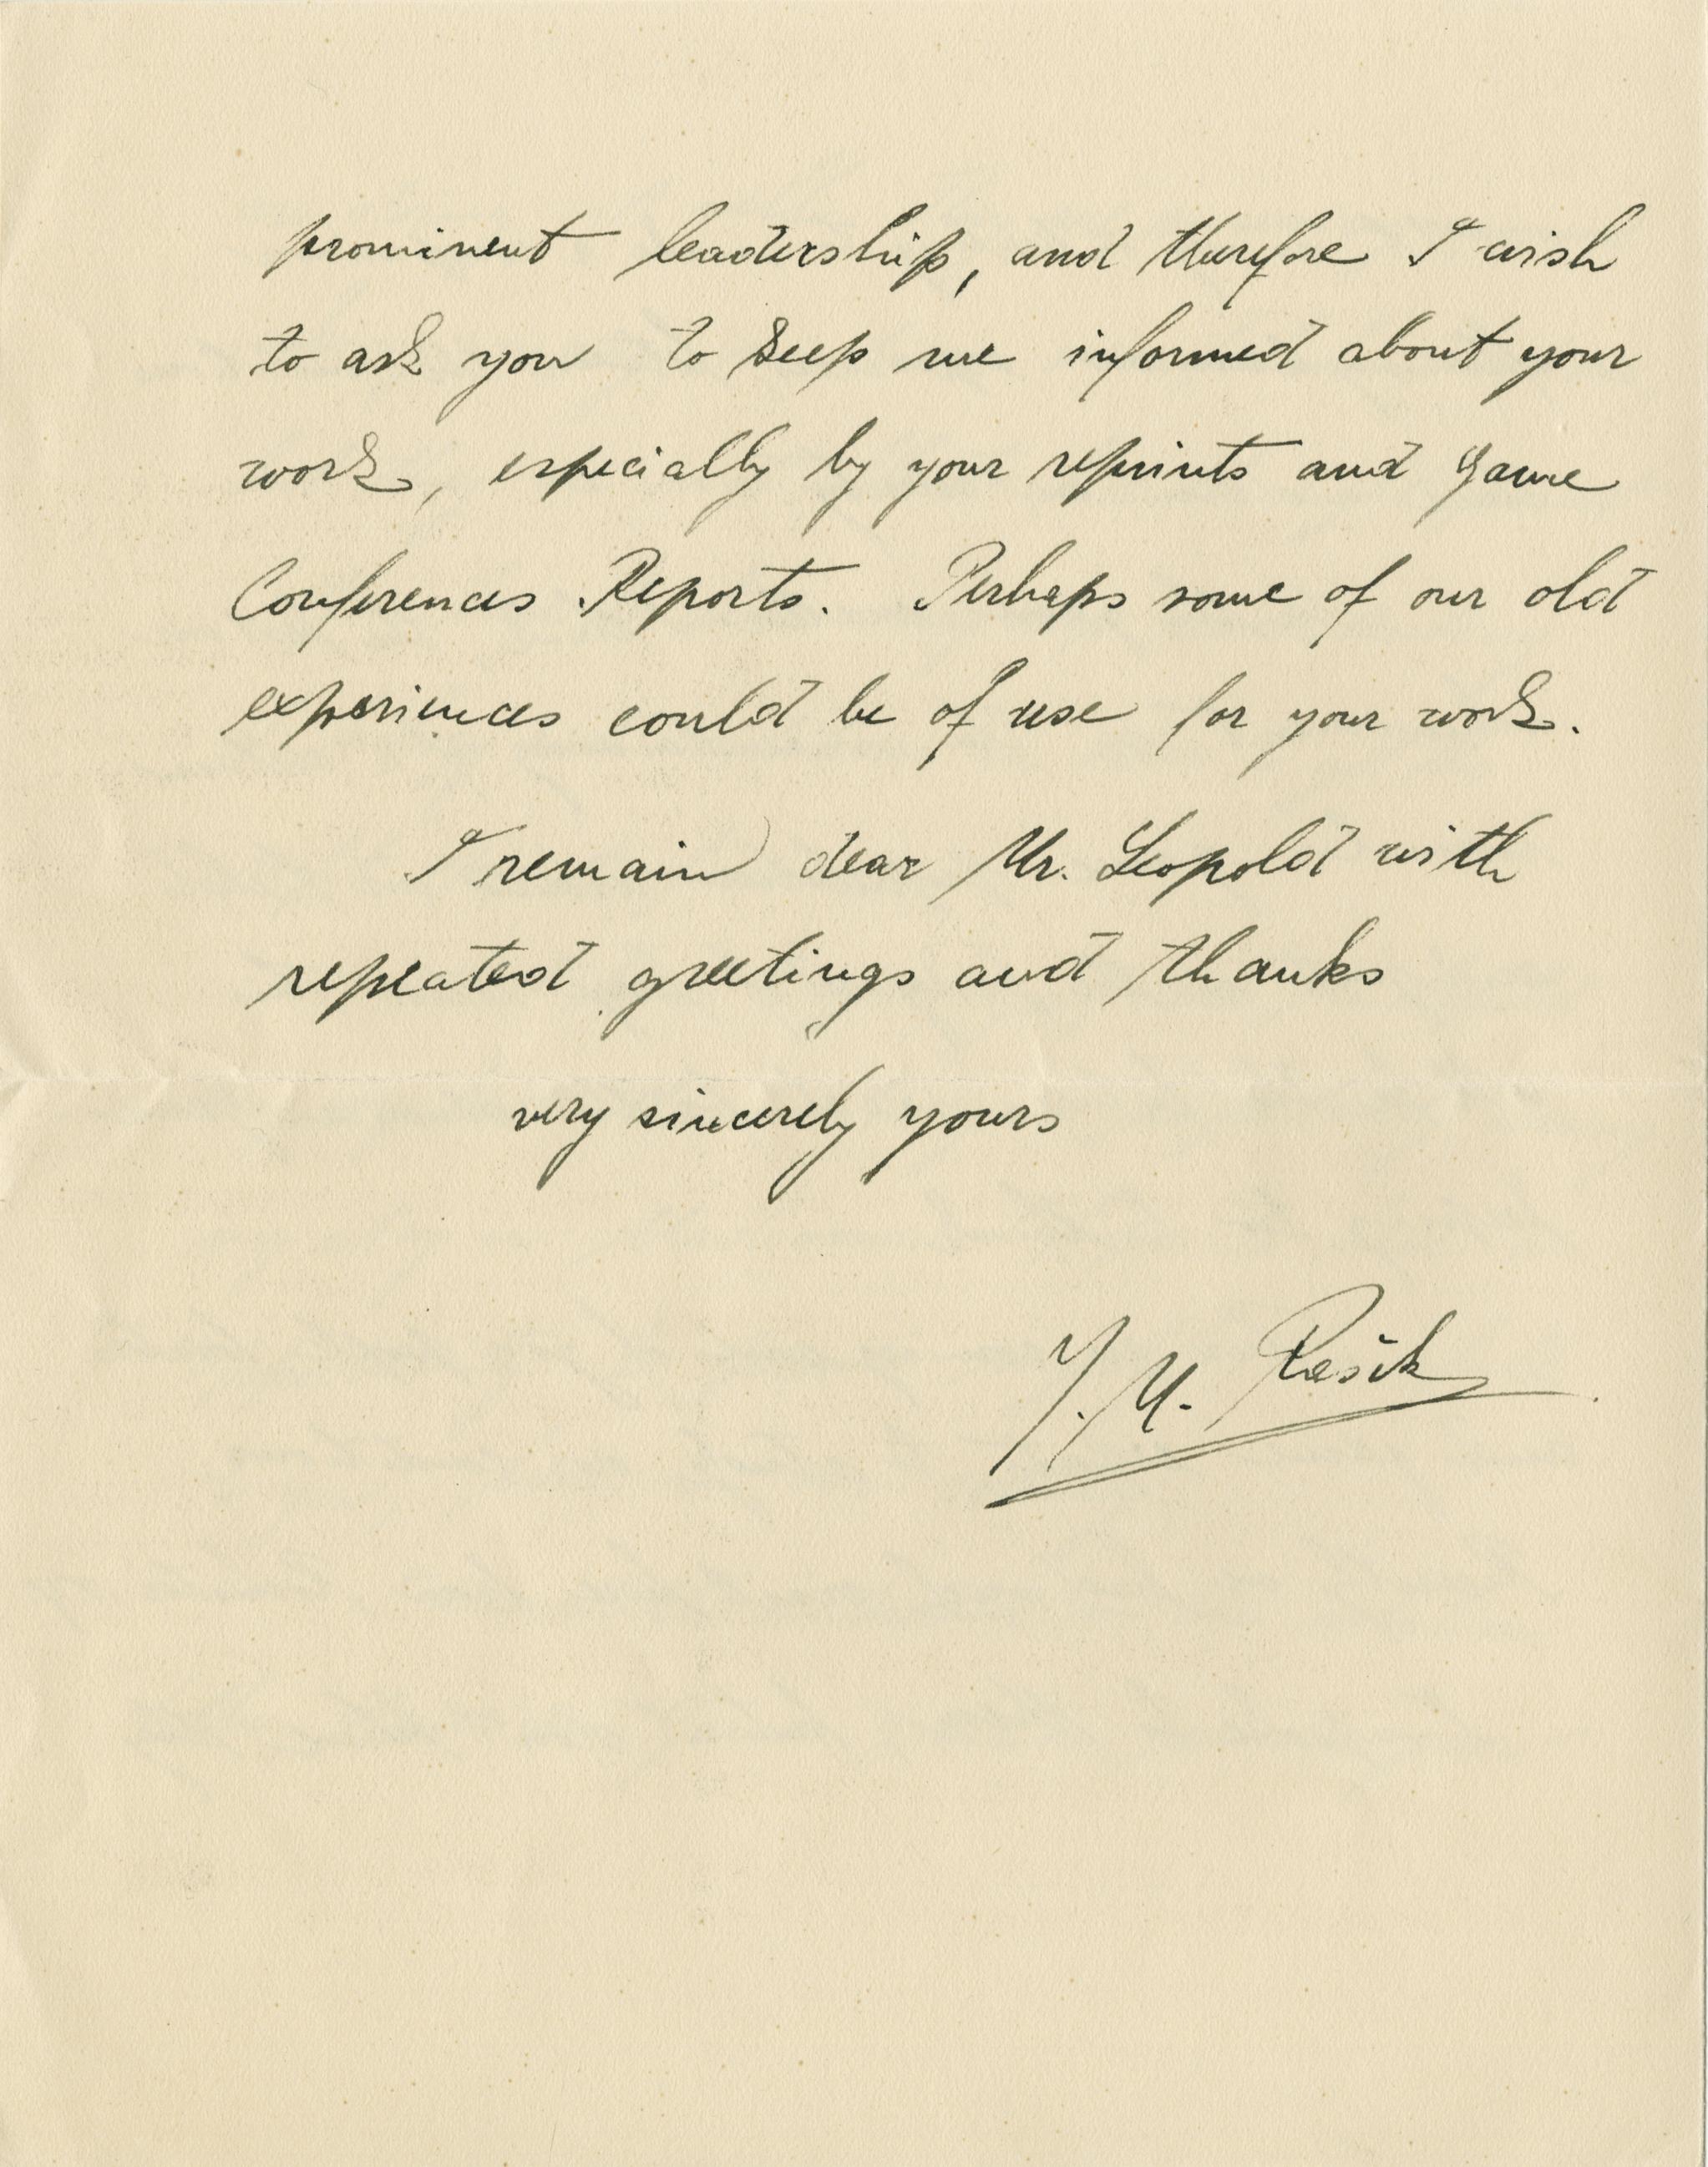 prominent leadership, and therefore I wish
to ask you to keep me informed about your
work, especially by your reprints and Game
Conferences Reports. Perhaps some of our old
experiences could be of use for your work.
I remain dear Mr. Leopold with
repeated greetings and thanks
very sincerely yours